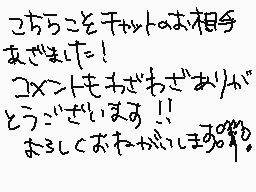 こちらこそチャットのお相手
あざました！
コメントもわざわざありが
とうございます！！
よろしくおねがいします。